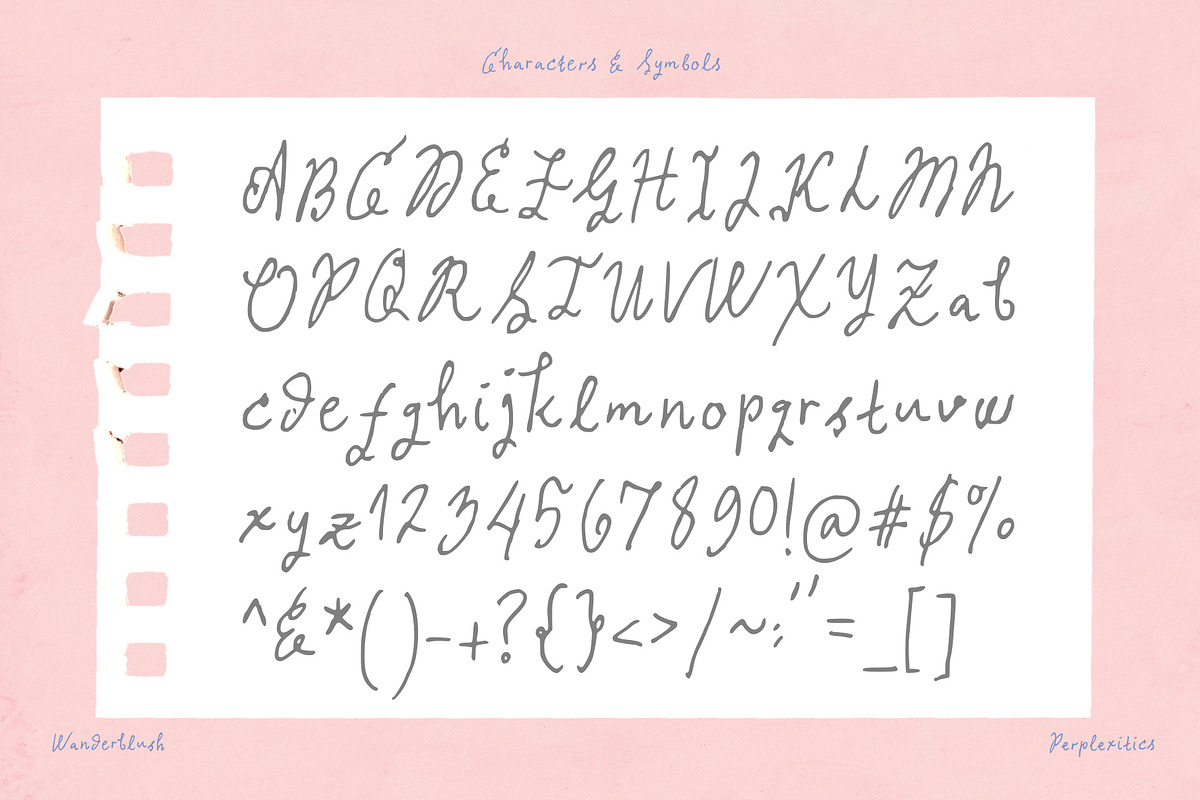 Characters & Symbols
ABCDEFGHIJKLMN
OPQRSTUVWXYZab
cdefghijklmnopqrstuvw
xyz1234567890!@#$%
^&*()-+?{}<>/~;"=_[]
Wanderblush
Perplexitics